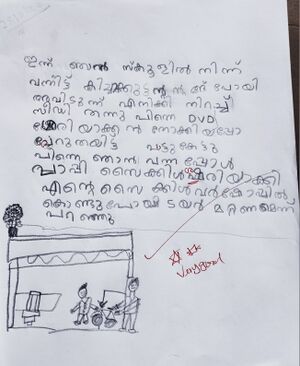 ഇന്ന് ഞാൻ സ്കൂളിൽ നിന്ന്
വന്നിട്ട് പോയി
അവിടുന്ന് എനിക്ക് നിറച്ച്
സീഡി തന്നു പിന്നെ DVD
ശരിയാക്കാൻ നോക്കിയപ്പോ
പാട്ടുകേട്ടു
പിന്നെ ഞാൻ വന്നപ്പോൾ
പ്രാപ്പി സൈക്കിൾ ശരിയാക്കി
എന്റെ സൈക്കിൾ വർക്ഷോപ്പിൽ
കൊണ്ടുപോയി ടയർ മാറ്റണമെന്ന്
പറഞ്ഞു
Very good